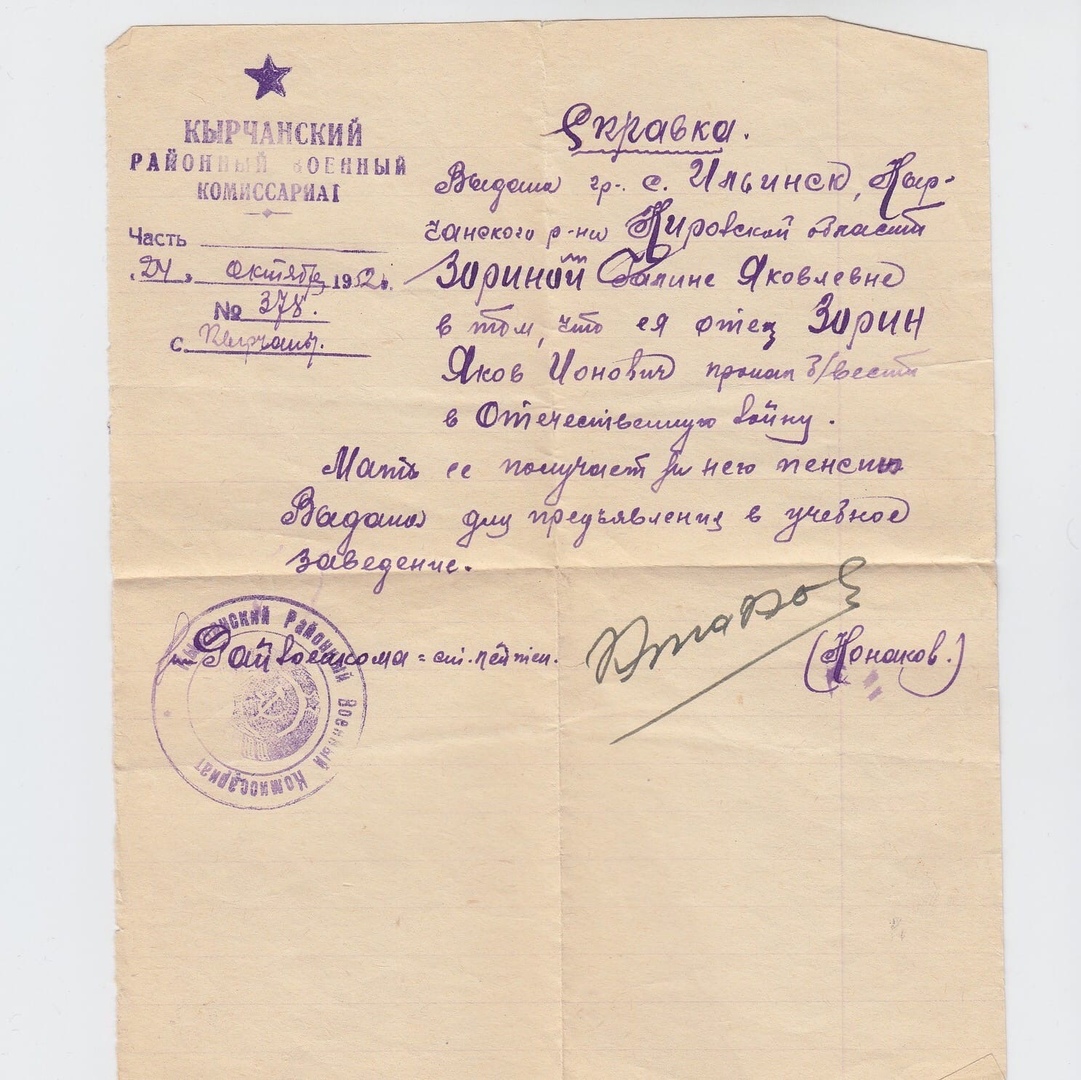 КЫРЧАНСКИЙ
РАЙОННЫЙ ВОЕННЫЙ
КОМИССАРИАТ
Часть
"24" октября 1952г.
№ 378.
с. Кырчаны.
Справка.
Выдана гр-. с. Ильинск, Кыр-
чанского р-на Кировской области
Зориной Галине Яковлевне
в том, что ея отец Зорин
Яков Ионович пропал б/вести
в Отечественную войну.
Мать ее получает за него пенсию
Выдана для предъявления в учебное
заведение.
Райвоенкома = ст. лейтен.
(Конаков.)
Кырчанский Районный Военный Комиссариат